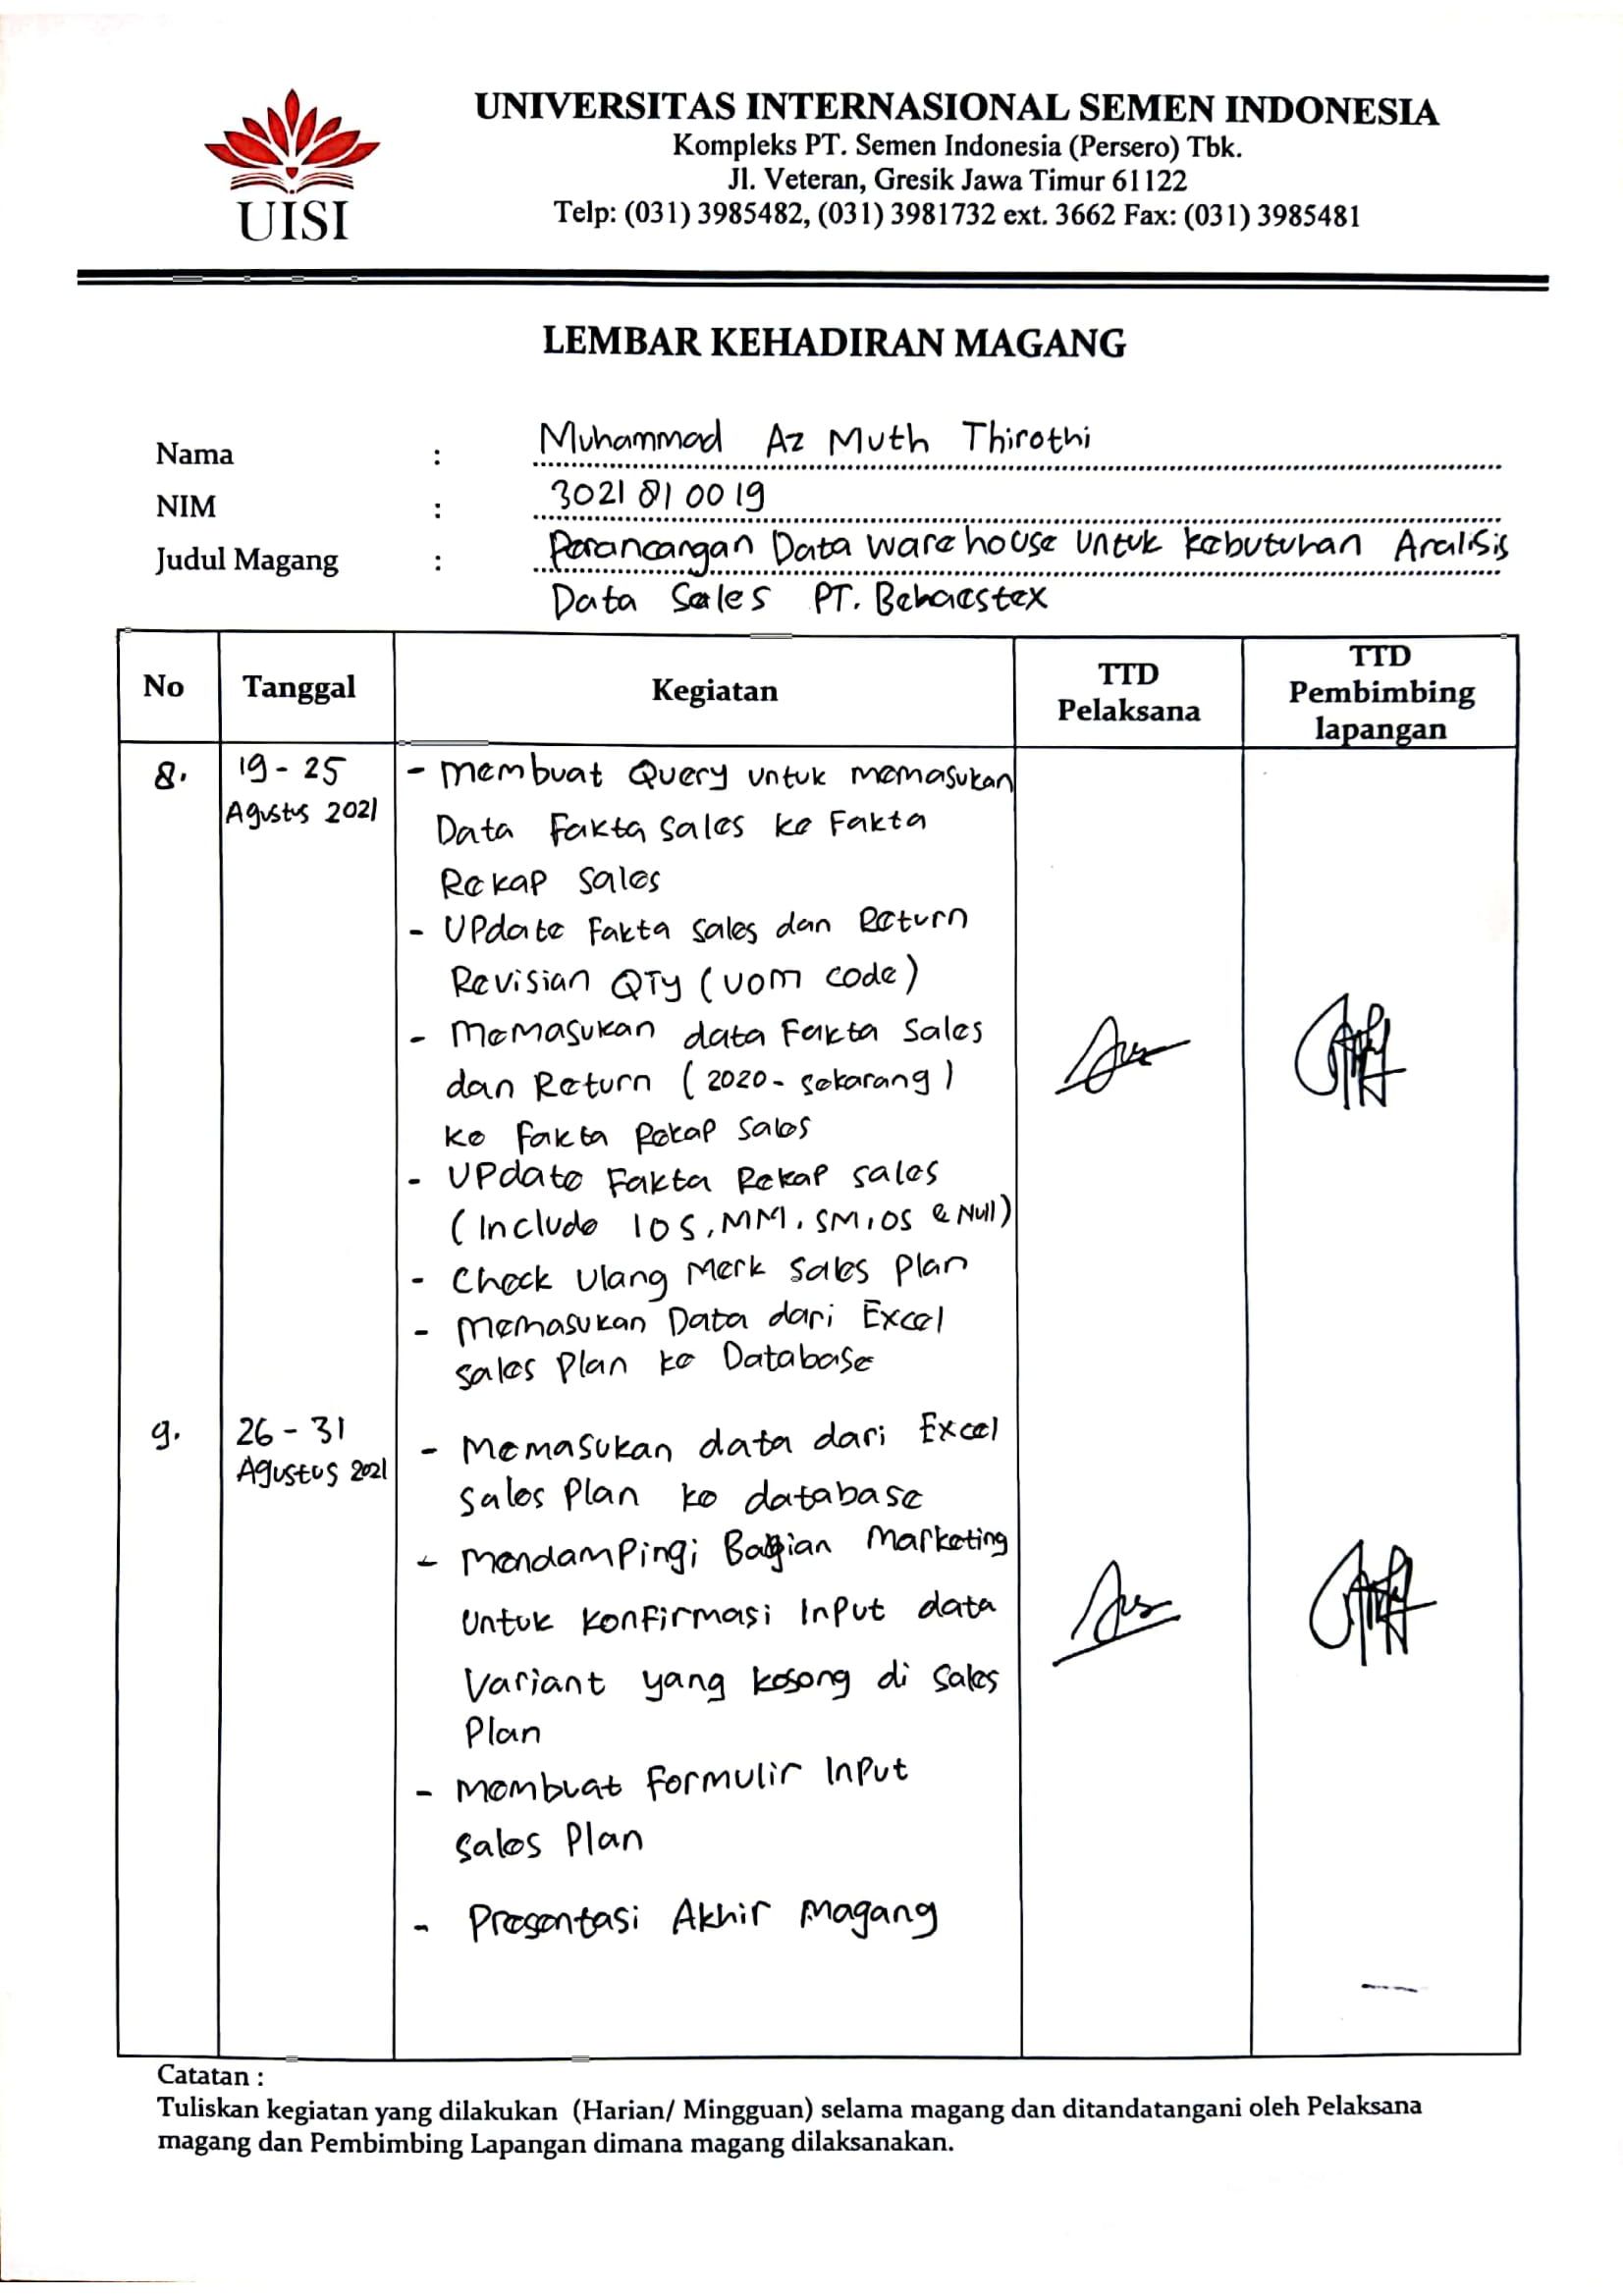 UISI
UNIVERSITAS INTERNASIONAL SEMEN INDONESIA
Kompleks PT. Semen Indonesia (Persero) Tbk.
Jl. Veteran, Gresik Jawa Timur 61122
Telp: (031) 3985482, (031) 3981732 ext. 3662 Fax: (031) 3985481
LEMBAR KEHADIRAN MAGANG
Nama : Muhammad Az Muth Thirothi
NIM : 3021810019
Judul Magang : Perancangan Data Warehouse Untuk Kebutuhan Analisis
Data Sales PT. Behaestex
No Tanggal Kegiatan TTD Pelaksana TTD Pembimbing lapangan
8. 19 - 25 Agustus 2021
- Membuat Query untuk memasukan
Data Fakta Sales ke Fakta
Rekap Sales
- Update Fakta Sales dan Return
Revisian QTY (UOM code)
- Memasukan data Fakta Sales
dan Return (2020 - Sekarang)
ke Fakta Rekap Sales
- Update Fakta Rekap Sales
(Include IOS, MM, SM, OS & Null)
- Check Ulang Merk Sales Plan
- Memasukan Data dari Excel
Sales Plan ke Database
9. 26 - 31 Agustus 2021
- Memasukan data dari Excel
Sales Plan ke database
- Mendampingi Bagian Marketing
Untuk Konfirmasi Input data
Variant yang kosong di Sales
Plan
- Membuat Formulir Input
Sales Plan
- Presentasi Akhir Magang
Catatan :
Tuliskan kegiatan yang dilakukan (Harian/ Mingguan) selama magang dan ditandatangani oleh Pelaksana
magang dan Pembimbing Lapangan dimana magang dilaksanakan.